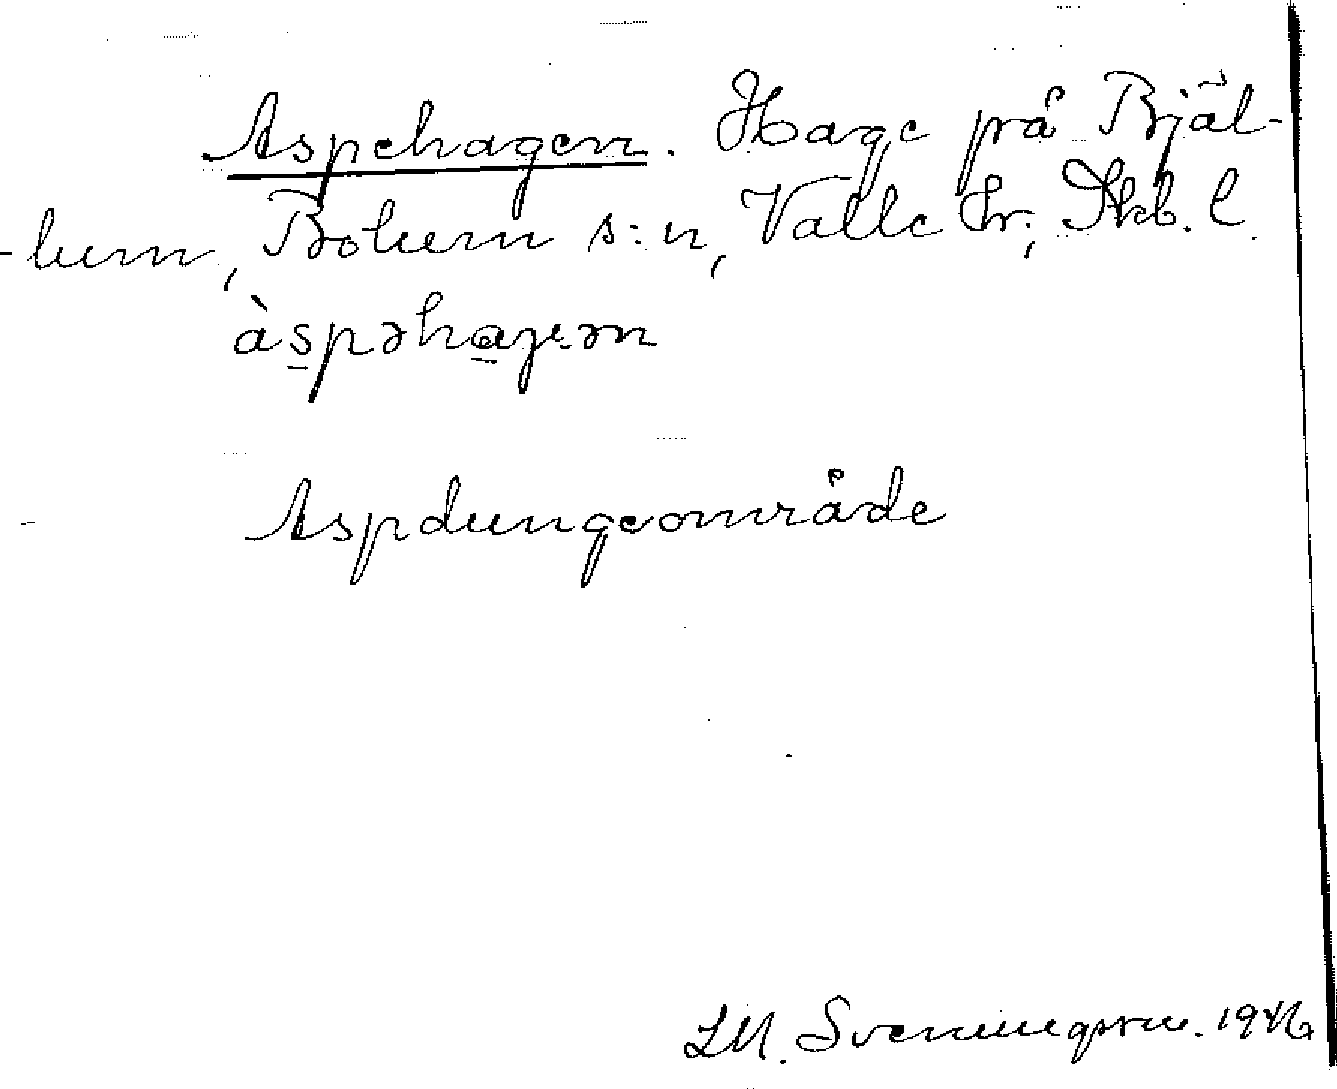 Aspehagen. Hage på Bjäl-
-lum, Bolum s:n, Valle hr; Skb. l.
àspəhaγən
Aspdungeområde
Sveningsson. 1946